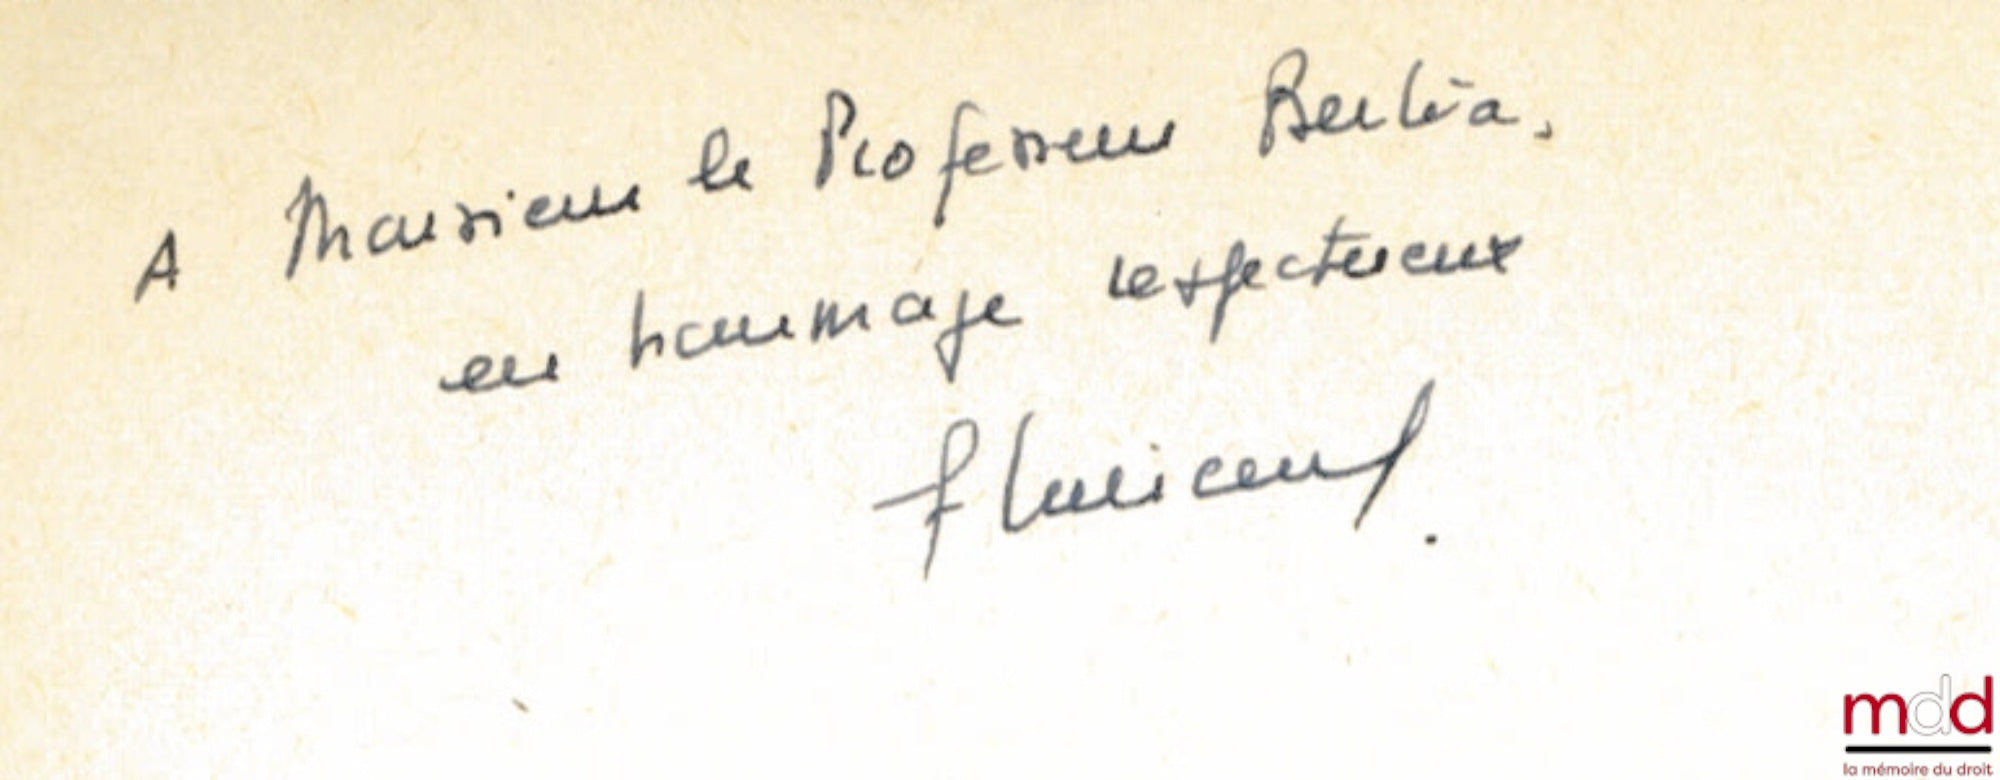 A Monsieur le Professeur Berlia,
en hommage respectueux
mdd
la mémoire du droit